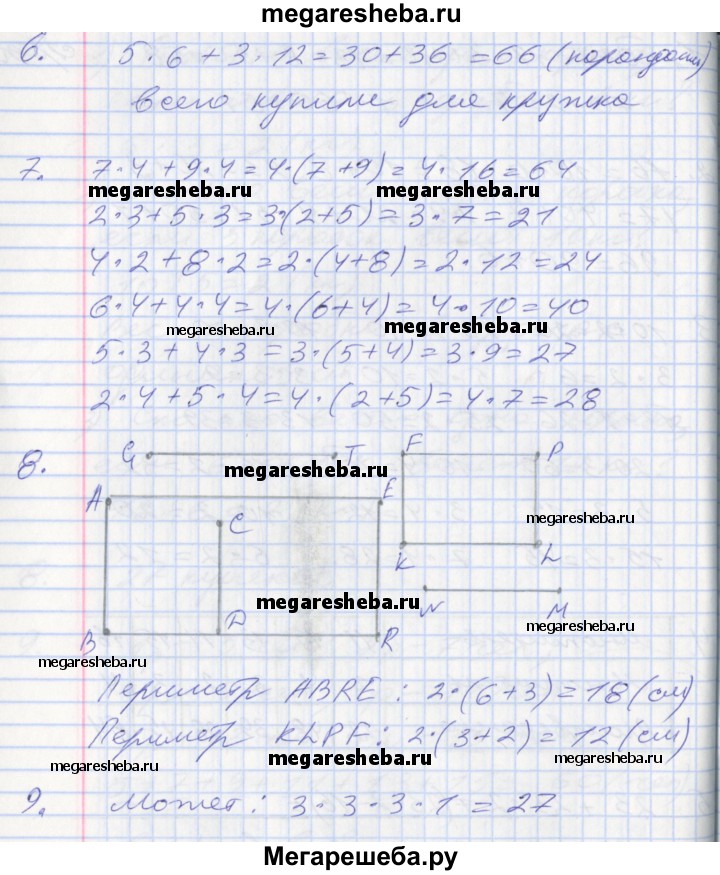 megaresheba.ru
6. 5·6+3·12=30+36=66 (карандаш)
всего купили для кружка
7. 7·4+9·4=4·(7+9)=4·16=64
megaresheba.ru megaresheba.ru
2·3+5·3=3·(2+5)=3·7=21
4·2+8·2=2·(4+8)=2·12=24
6·4+4·4=4·(6+4)=4·10=40
megaresheba.ru megaresheba.ru
5·3+4·3=3·(5+4)=3·9=27
2·4+5·4=4·(2+5)=4·7=28
8. G T F P
megaresheba.ru
A E
C megaresheba.ru
K L
megaresheba.ru N M
B D R megaresheba.ru
megaresheba.ru
Периметр ABRE: 2·(6+3)=18 (см)
megaresheba.ru
Периметр KLPF: 2·(3+2)=12 (см)
megaresheba.ru megaresheba.ru megaresheba.ru
9. Может: 3·3·3·1=27
Мегарешеба.ру